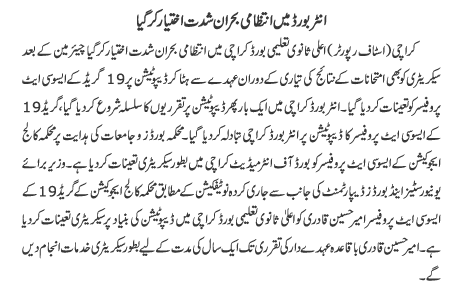 انٹر بورڈ میں انتظامی بحران شدت اختیار کر گیا
کراچی (اسٹاف رپورٹر) اعلیٰ ثانوی تعلیمی بورڈ کراچی میں انتظامی بحران شدت اختیار کر گیا چیئرمین کے بعد
سیکریٹری کو بھی امتحانات کے نتائج کی تیاری کے دوران عہدے سے ہٹا کر ڈیپوٹیشن پر 19 گریڈ کے ایسوسی ایٹ
پروفیسر کو تعینات کر دیا گیا۔ انٹر بورڈ کراچی میں ایک بار پھر ڈیپوٹیشن پر تقرریوں کا سلسلہ شروع کر دیا گیا، گریڈ 19
کے ایسوسی ایٹ پروفیسر کا ڈیپوٹیشن پر انٹر بورڈ کراچی تبادلہ کر دیا گیا۔ محکمہ بورڈز و جامعات کی ہدایت پر محکمہ کالج
ایجوکیشن کے ایسوسی ایٹ پروفیسر کو بورڈ آف انٹر میڈیٹ کراچی میں بطور سیکریٹری تعینات کر دیا ہے۔ وزیر برائے
یونیورسٹیز اینڈ بورڈز ڈیپارٹمنٹ کی جانب سے جاری کردہ نوٹیفکیشن کے مطابق محکمہ کالج ایجوکیشن کے گریڈ 19 کے
ایسوسی ایٹ پروفیسر امیر حسین قادری کو اعلیٰ ثانوی تعلیمی بورڈ کراچی میں ڈیپوٹیشن کی بنیاد پر سیکریٹری تعینات کر دیا
ہے۔ امیر حسین قادری باقاعدہ عہدے دار کی تقرری تک ایک سال کی مدت کے لیے بطور سیکریٹری خدمات انجام دیں
گے۔